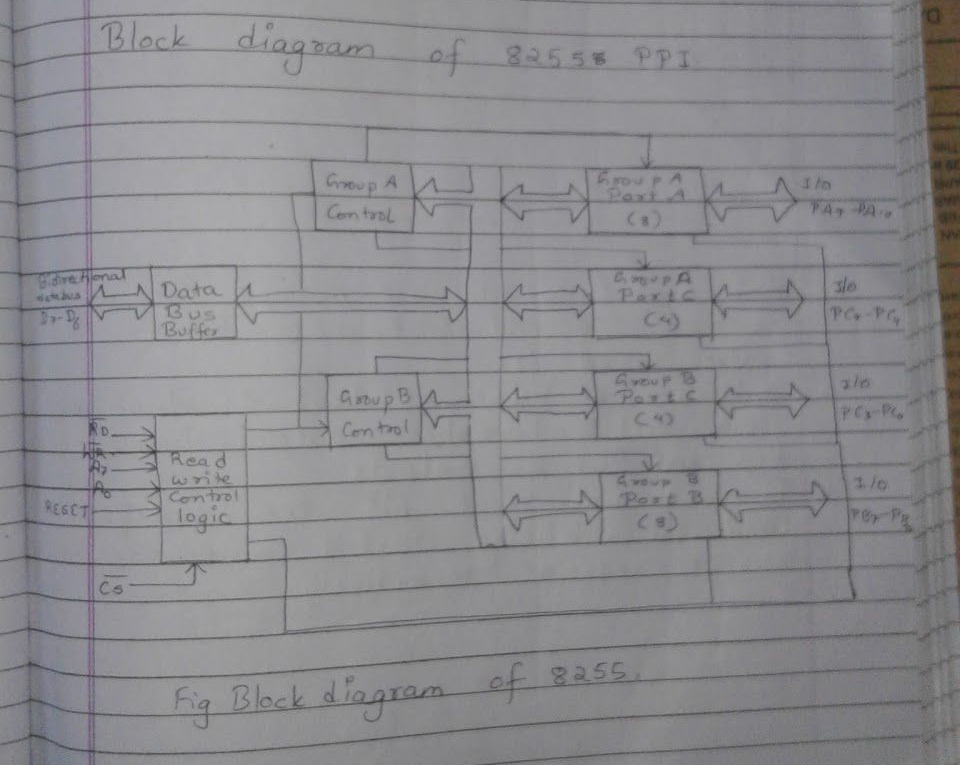 Block diagram of 8255 PPI
Group A
Control
Group A
Port A
(8)
I/O
PA7-PA0
Bidirectional
databus
D7-D0
Data
Bus
Buffer
Group A
Port C
(4)
I/O
PC7-PC4
Group B
Control
Group B
Port C
(4)
I/O
PC3-PC0
RD
WR
A1
A0
RESET
CS
Read
write
Control
logic
Group B
Port B
(8)
I/O
PB7-PB0
Fig Block diagram of 8255.